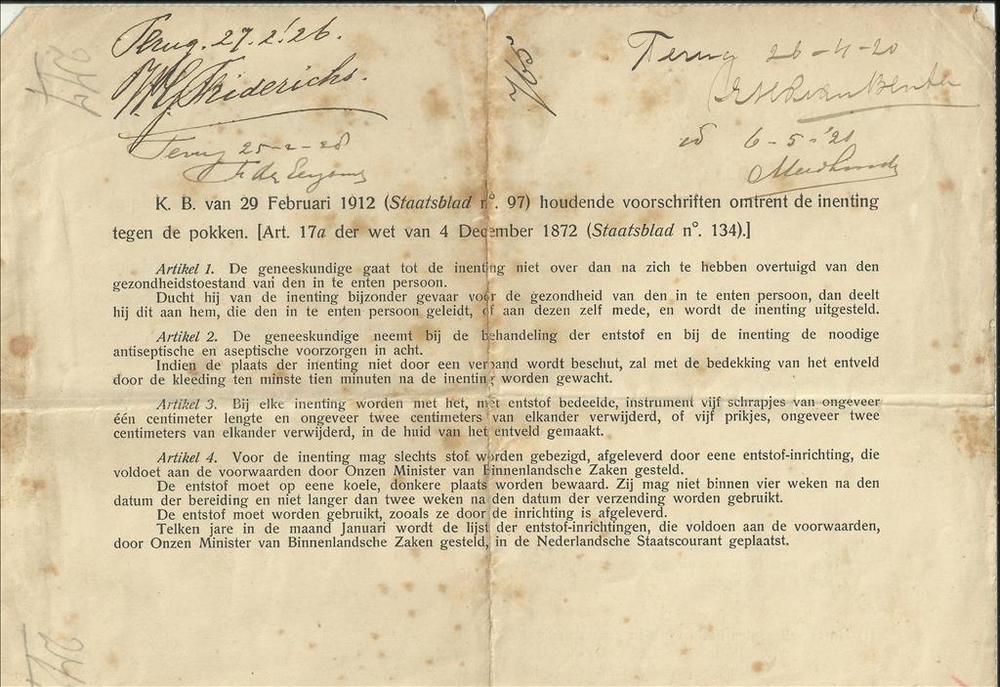 Terug. 27.2.'26.
Friderichs.
Terug 25-2-28
Terug 26-4-20
id 6-5-'20
K. B. van 29 Februari 1912 (Staatsblad n°. 97) houdende voorschriften omtrent de inenting
tegen de pokken. [Art. 17a der wet van 4 December 1872 (Staatsblad n°. 134).]
Artikel 1. De geneeskundige gaat tot de inenting niet over dan na zich te hebben overtuigd van den
gezondheidstoestand van den in te enten persoon.
Ducht hij van de inenting bijzonder gevaar voor de gezondheid van den in te enten persoon, dan deelt
hij dit aan hem, die den in te enten persoon geleidt, of aan dezen zelf mede, en wordt de inenting uitgesteld.
Artikel 2. De geneeskundige neemt bij de behandeling der entstof en bij de inenting de noodige
antiseptische en aseptische voorzorgen in acht.
Indien de plaats der inenting niet door een verband wordt beschut, zal met de bedekking van het entveld
door de kleeding ten minste tien minuten na de inenting worden gewacht.
Artikel 3. Bij elke inenting worden met het, met entstof bedeelde, instrument vijf schrapjes van ongeveer
één centimeter lengte en ongeveer twee centimeters van elkander verwijderd, of vijf prikjes, ongeveer twee
centimeters van elkander verwijderd, in de huid van het entveld gemaakt.
Artikel 4. Voor de inenting mag slechts stof worden gebezigd, afgeleverd door eene entstof-inrichting, die
voldoet aan de voorwaarden door Onzen Minister van Binnenlandsche Zaken gesteld.
De entstof moet op eene koele, donkere plaats worden bewaard. Zij mag niet binnen vier weken na den
datum der bereiding en niet langer dan twee weken na den datum der verzending worden gebruikt.
De entstof moet worden gebruikt, zooals ze door de inrichting is afgeleverd.
Telken jare in de maand Januari wordt de lijst der entstof-inrichtingen, die voldoen aan de voorwaarden,
door Onzen Minister van Binnenlandsche Zaken gesteld, in de Nederlandsche Staatscourant geplaatst.